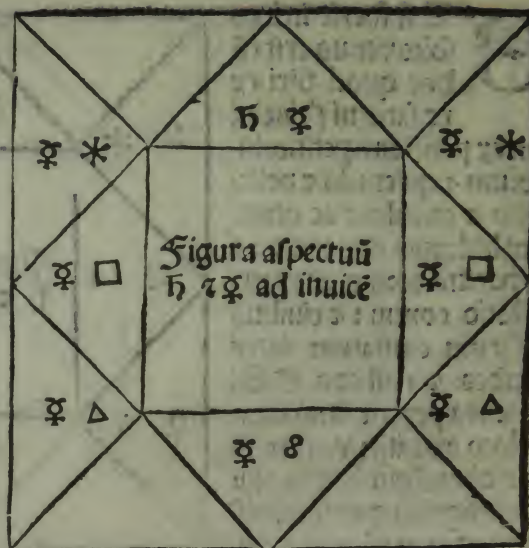 ♄ ☿
☿ ⚹
☿ ⚹
Figura aſpectuū
♄ ⁊ ☿ ad inuicē
☿ □
☿ □
☿ △
☿ △
☿ ☍